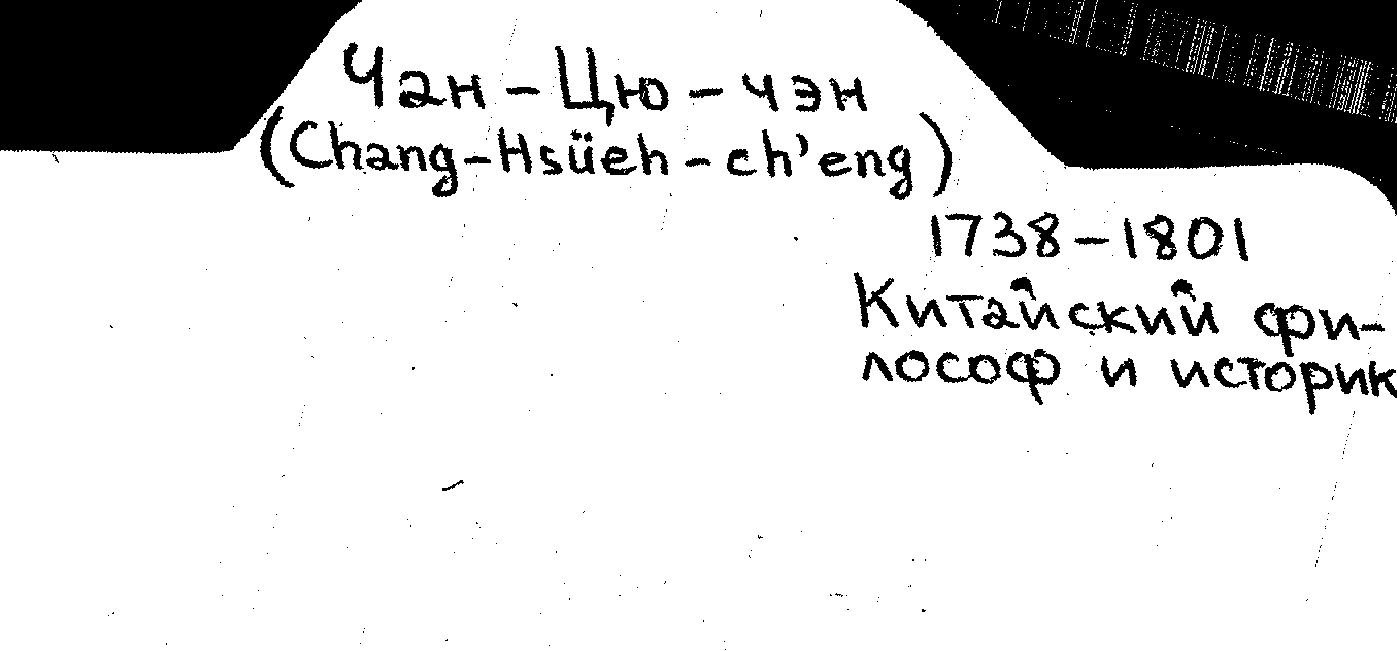 Чан-Цю-чэн
(Chang-Hsüeh-ch'eng)
1738-1801
Китайский фи-
лософ и историк